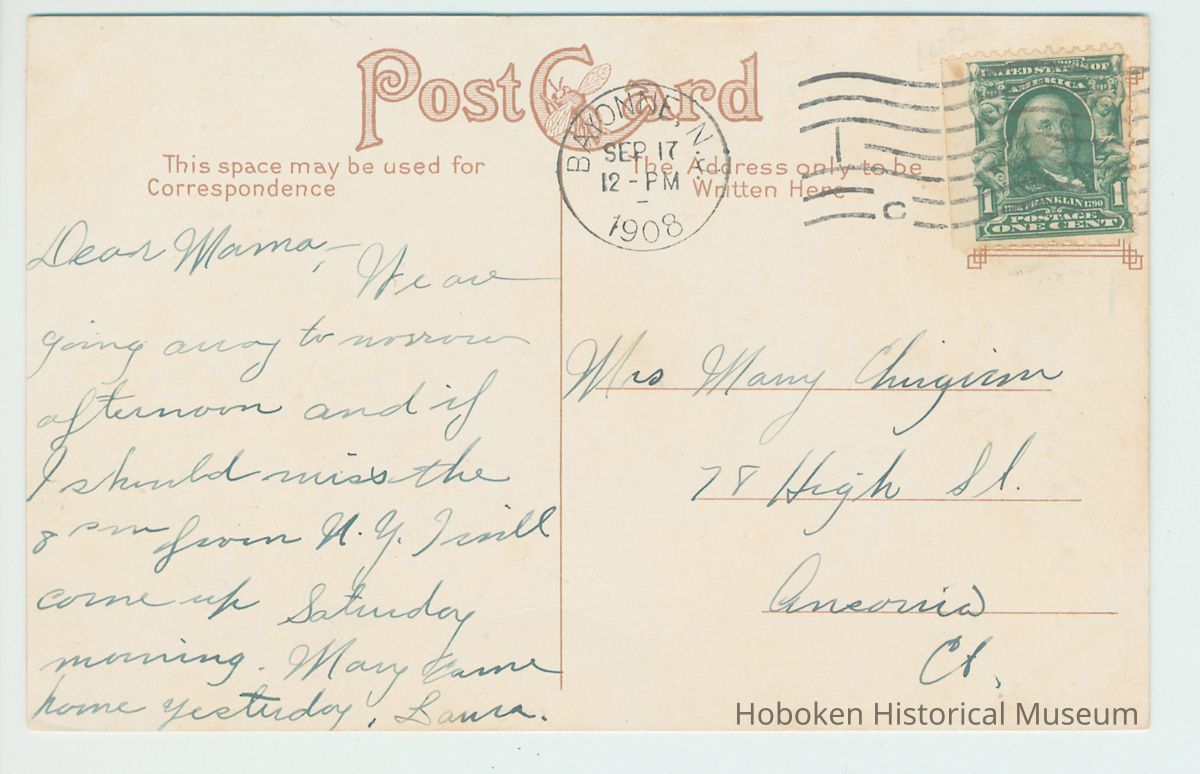 Post Card
This space may be used for
Correspondence
The Address only to be
Written Here
BAYONNE, N.J.
SEP 17
12 - PM
1908
C
UNITED STATES OF
AMERICA
1 FRANKLIN 1790 1
POSTAGE
ONE CENT
Dear Mama,—
We are
going away to morrow
afternoon and if
I should miss the
8 pm from N.Y. I will
come up Saturday
morning. Mary came
home yesterday, Laura.
Mrs Mary
78 High St.
Ansonia
Ct.
Hoboken Historical Museum